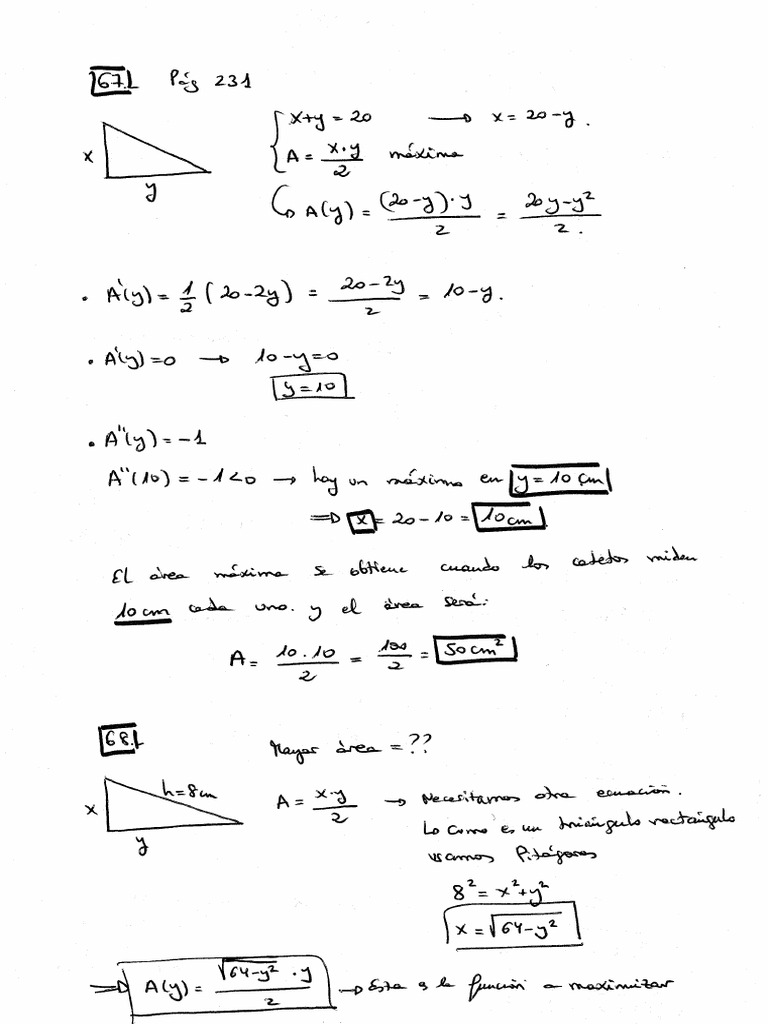 67.| Pág 231
x+y = 20 → x = 20-y.
x
A = x·y/2 máxima
y
↳ A(y) = (20-y)·y/2 = 20y-y²/2.
• A'(y) = 1/2 (20-2y) = 20-2y/2 = 10-y.
• A'(y)=0 → 10-y=0
y=10
• A''(y) = -1
A''(10) = -1<0 → hay un máximo en y=10 cm
⇒ x = 20-10 = 10cm
El área máxima se obtiene cuando los catetos miden
10cm cada uno. y el área será:
A = 10·10/2 = 100/2 = 50cm²
68.| Mayor área = ??
h=8cm
x
A = x·y/2 → Necesitamos otra ecuación.
y
↳ como es un triángulo rectángulo
usamos Pitágoras
8² = x²+y²
x = √64-y²
⇒ A(y) = √64-y² · y/2 → Esta es la función a maximizar